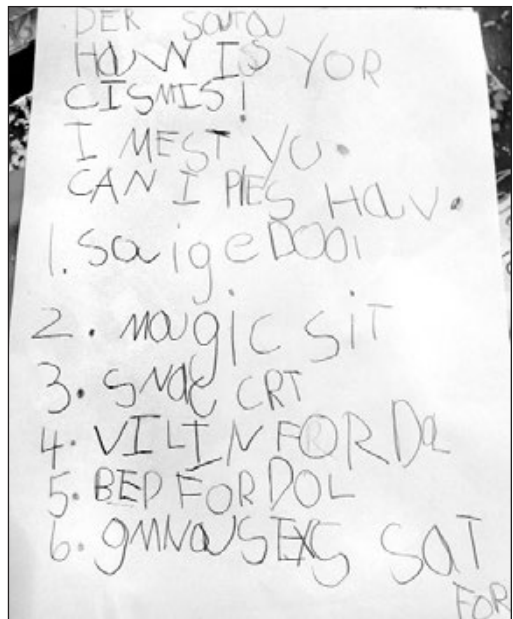 DER Santa
HOW IS YOR
CISMIS!
I MEST YU.
CAN I PlES Hav.
1. saigeDOOl
2. magic siT
3. SNAC CRT
4. VILIN FOR Dol
5. BED FOR DOL
6. gMNaSEKS SaT
FOR